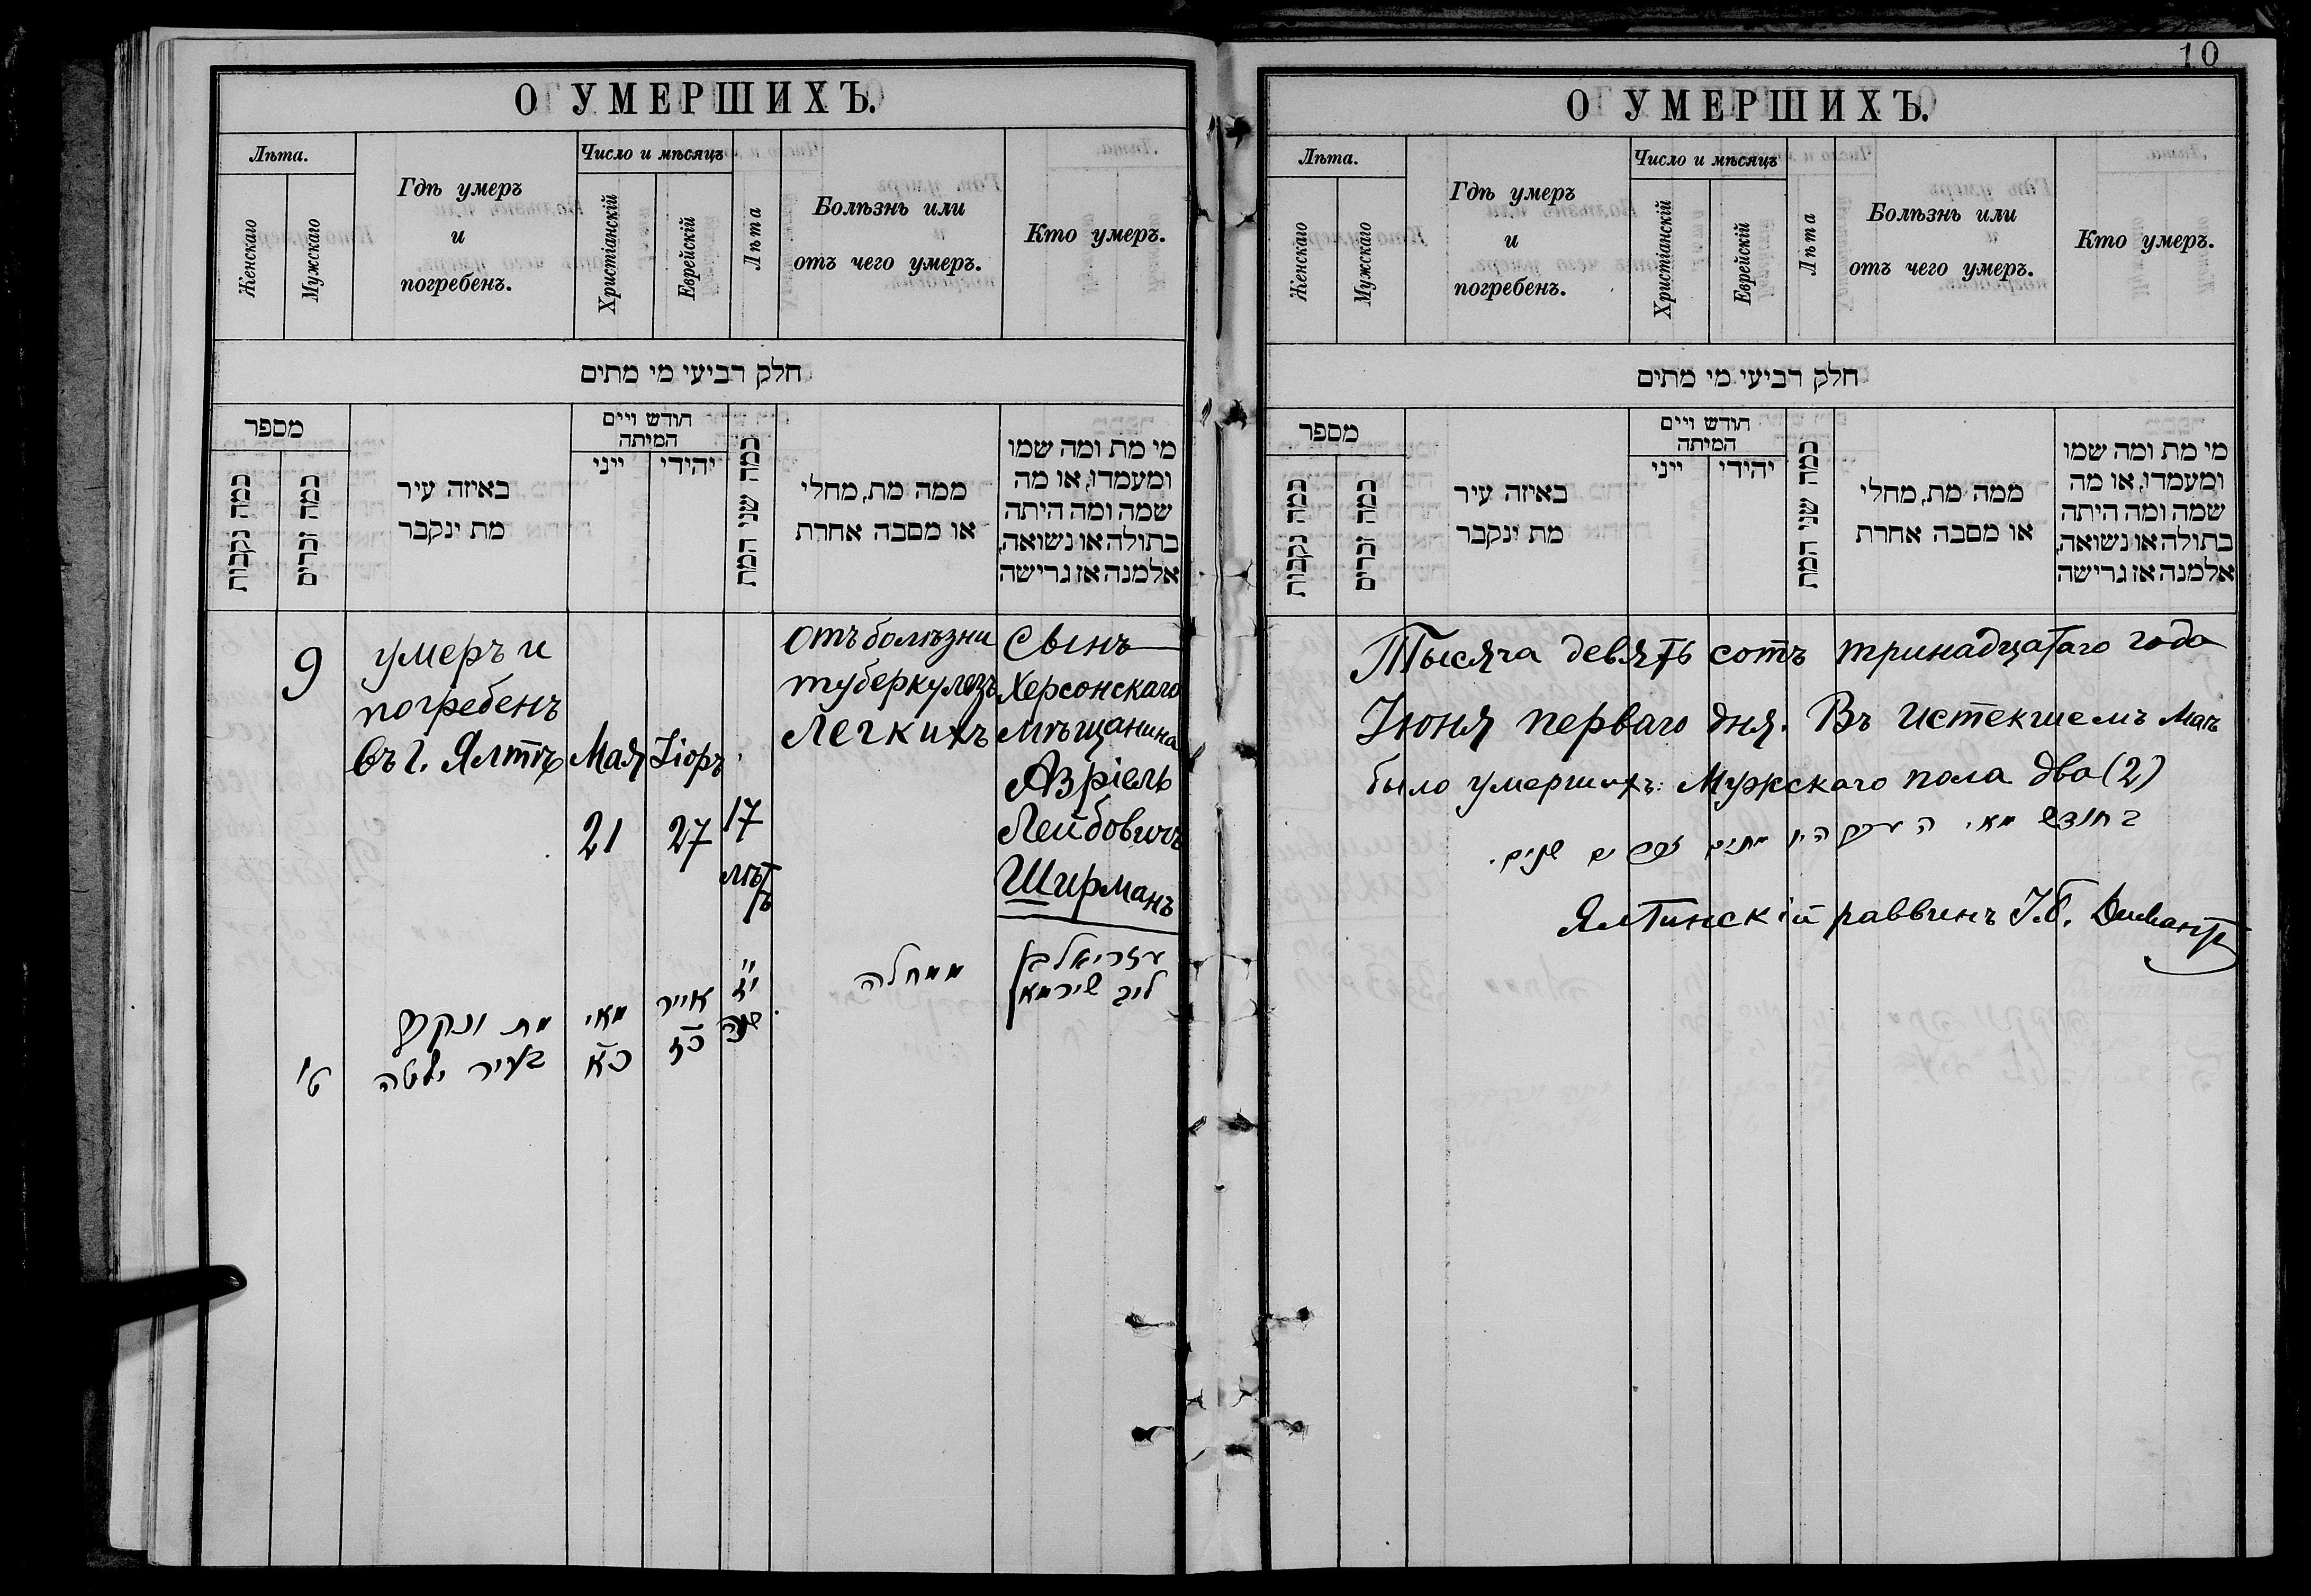 10
О УМЕРШИХЪ.
Лѣта.
Женскаго
Мужскаго
Гдѣ умеръ
и
погребенъ.
Число и мѣсяцъ
Христіанскій
Еврейскій
Лѣта
Болѣзнь или
отъ чего умеръ.
Кто умеръ.
חלק רביעי מי מתים
מספר
כמה נקבות
כמה זכרים
באיזה עיר
מת ינקבר
חודש ויים
המיתה
ייני
יהידי
כמה שני המת
ממה מת, מחלי
או מסבה אחרת
מי מת ומה שמו
ומעמדו, או מה
שמה ומה היתה
בתולה או נשואה,
אלמנה אז גרישה
9
умеръ и
погребенъ
въ г. Ялтѣ
Мая
21
Іiоръ
27
17
лѣтъ
отъ болѣзни
туберкулезъ
легкихъ
Сынъ
Херсонскаго
мѣщанина
Азріель
Лейбовичъ
Ширманъ
ט'
מת ונקבר
בעיר ילטה
מאי
כא
אייר
כז
יז
שנה
ממחלה
עזריאל בן
ליב שירמאן
О УМЕРШИХЪ.
Лѣта.
Женскаго
Мужскаго
Гдѣ умеръ
и
погребенъ.
Число и мѣсяцъ
Христіанскій
Еврейскій
Лѣта
Болѣзнь или
отъ чего умеръ.
Кто умеръ.
חלק רביעי מי מתים
מספר
כמה נקבות
כמה זכרים
באיזה עיר
מת ינקבר
חודש ויים
המיתה
ייני
יהידי
כמה שני המת
ממה מת, מחלי
או מסבה אחרת
מי מת ומה שמו
ומעמדו, או מה
שמה ומה היתה
בתולה או נשואה,
אלמנה אז גרישה
Тысяча девять сотъ тринадцатаго года
Іюня перваго дня. Въ истекшемъ Маѣ
было умершихъ: Мужскаго пола два (2)
בחודש מאי היו מתים זכרים שנים.
Ялтинскій раввинъ І.б.